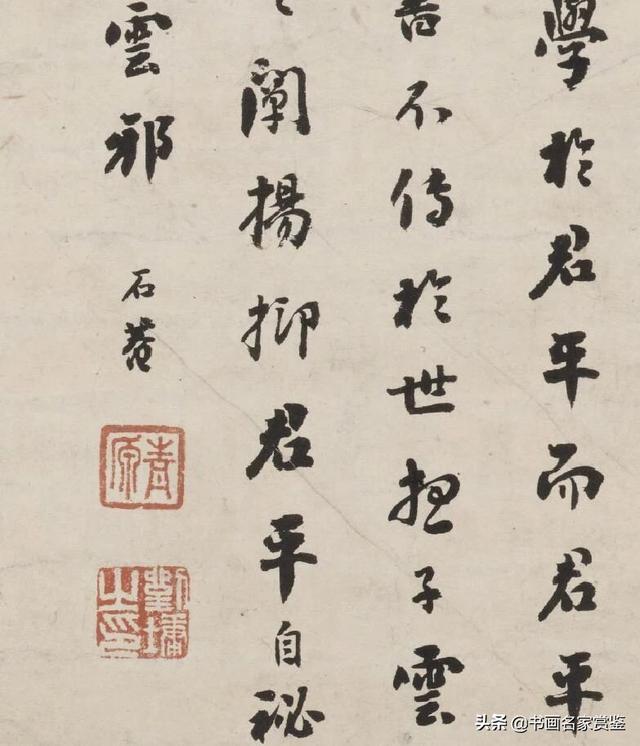 學於君平而君平
不傳於世想子雲
闡揚抑君平自秘
雲邪
石菴
青原
劉墉之印
头条 @书画名家赏鉴